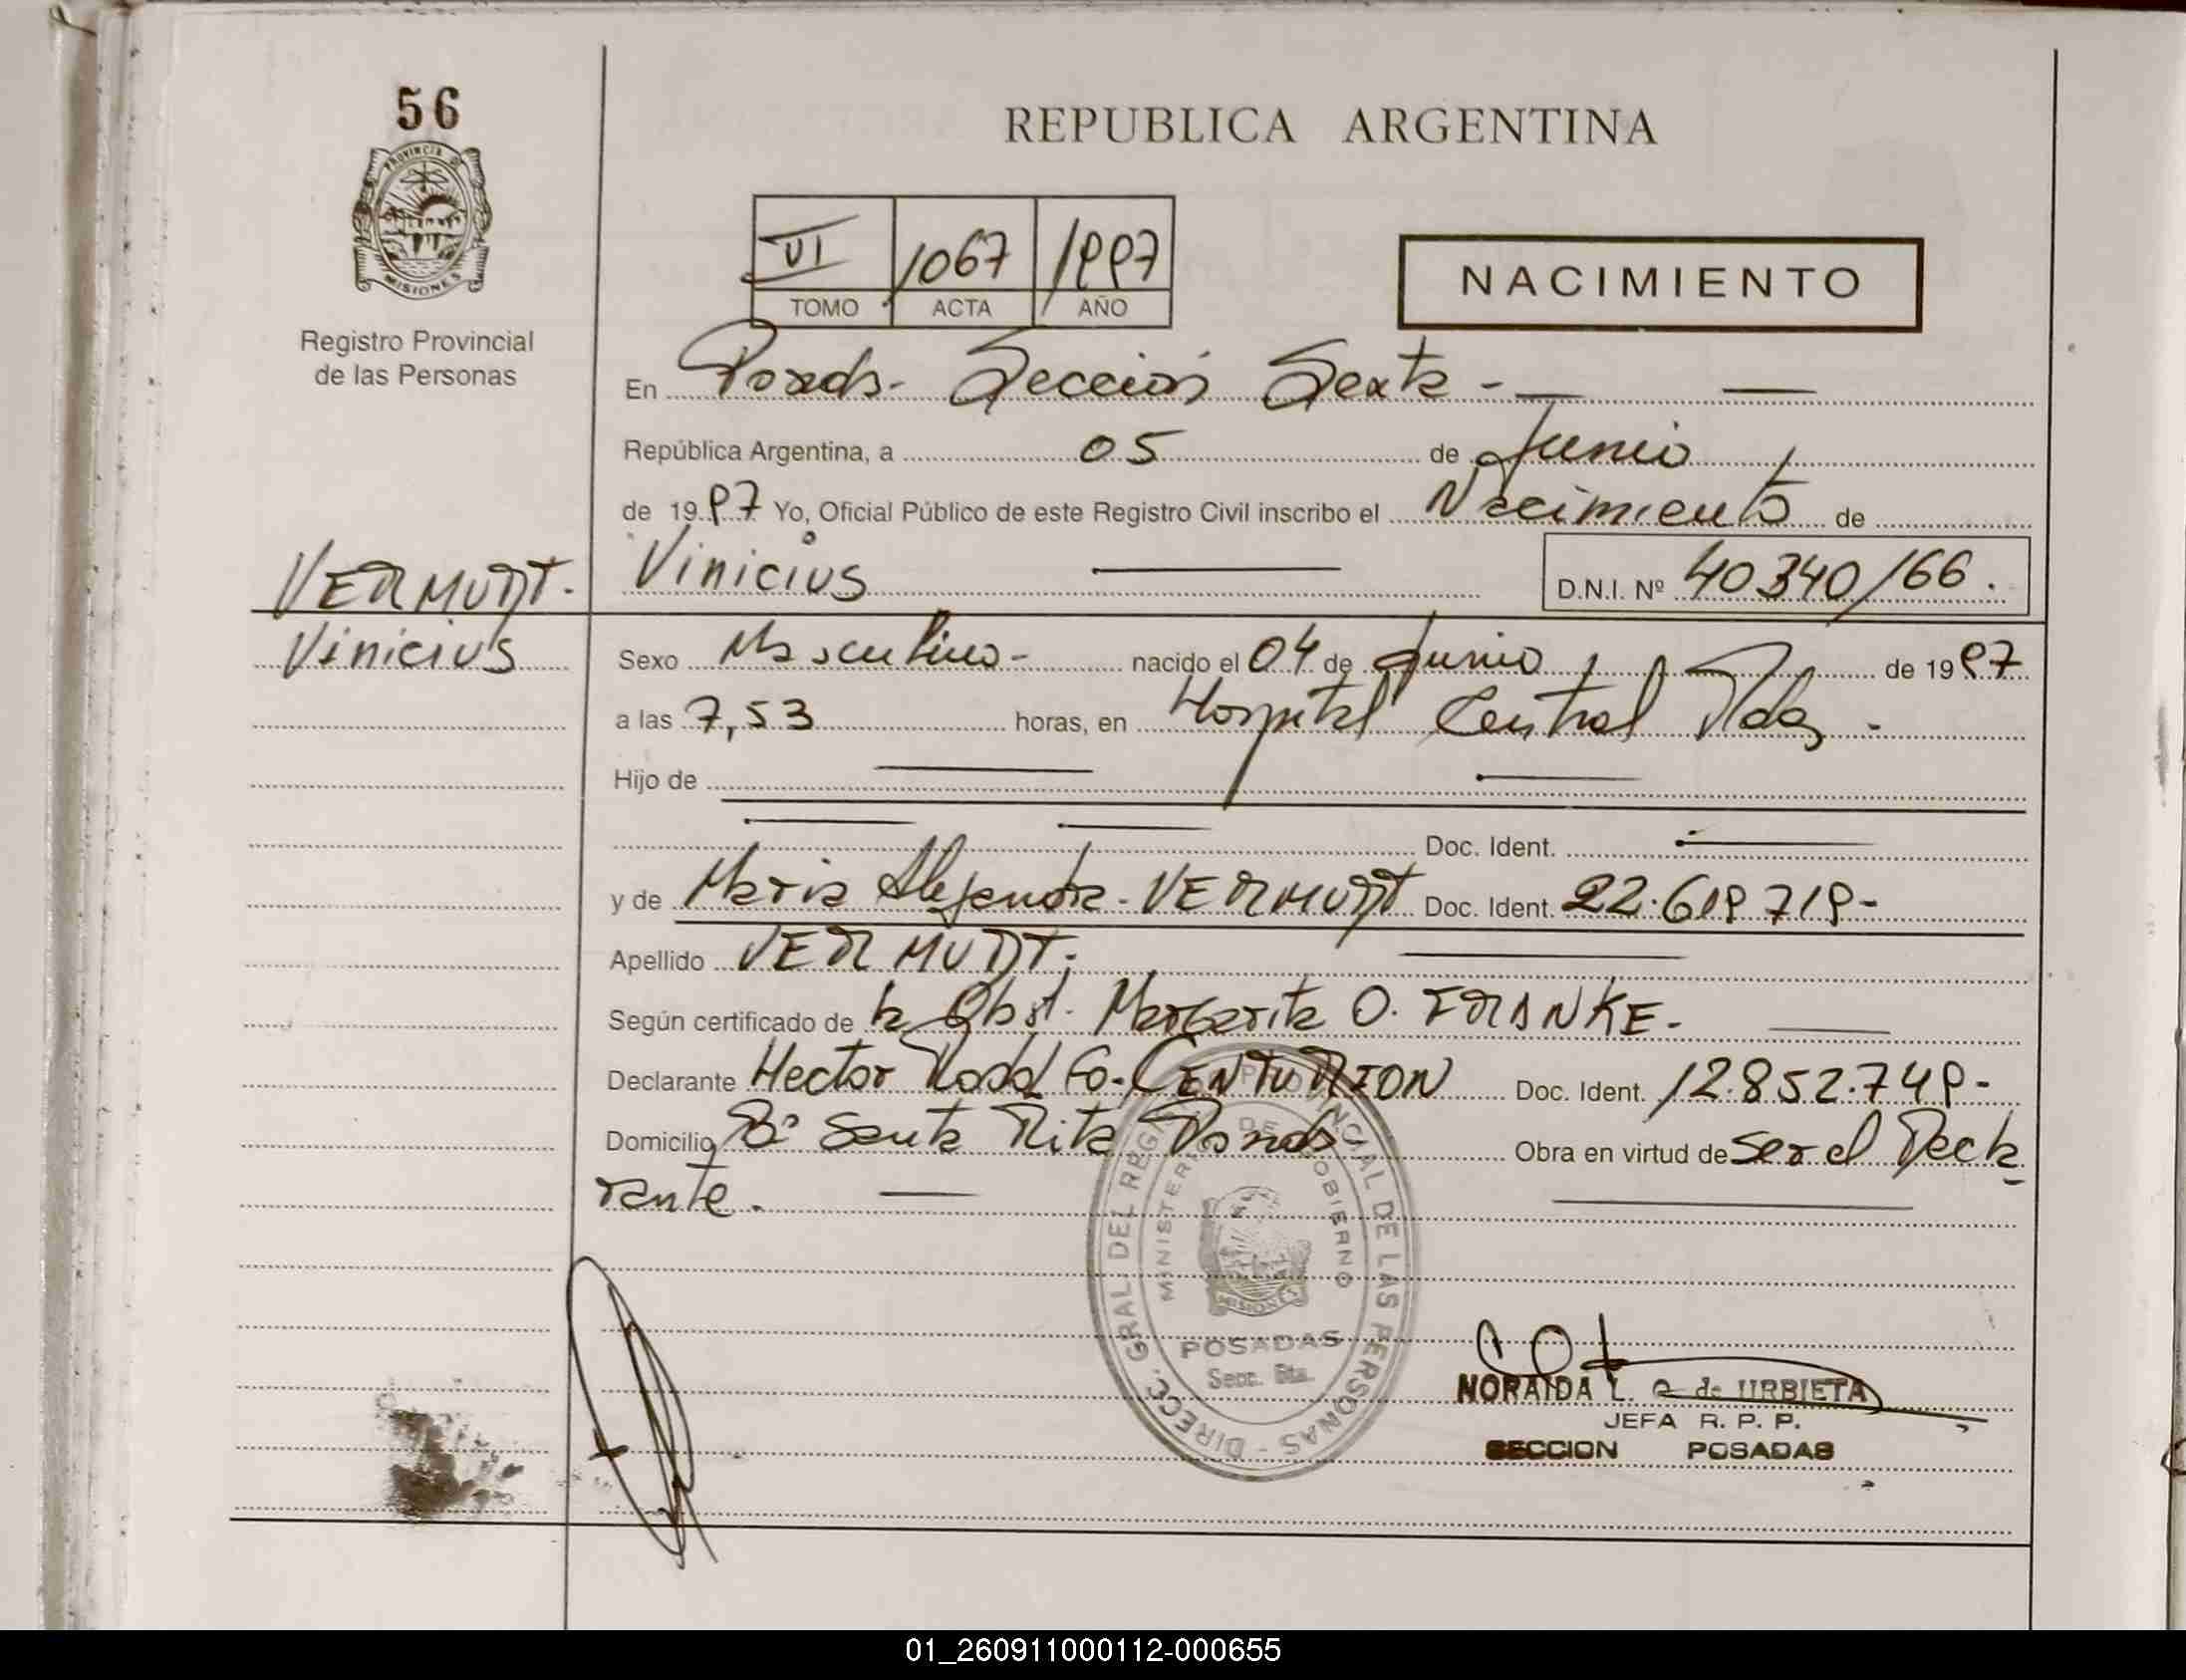 56
PROVINCIA DE
MISIONES
Registro Provincial
de las Personas
REPUBLICA ARGENTINA
VI 1067 1997
TOMO ACTA AÑO
NACIMIENTO
En Posadas - Sección Sexta -
República Argentina, a 05 de Junio
de 1997 Yo, Oficial Público de este Registro Civil inscribo el Nacimiento de
Vinicius D.N.I. Nº 40340166.
VERMURT.
Vinicius
Sexo Masculino - nacido el 04 de Junio de 1997
a las 7,53 horas, en Hospital Central Pdas.
Hijo de
Doc. Ident.
y de Maria Alejandra - VERMURT Doc. Ident. 22.619.719-
Apellido VERMURT.
Según certificado de la Obst. Margarita O. FRANKE.
Declarante Hector Rodolfo - CENTURION Doc. Ident. 12.852.749-
Domicilio Bº Santa Rita Posadas Obra en virtud de ser el Decla
rante.
DIRECC. GRAL DEL REG. PROVINCIAL DE LAS PERSONAS -
MINISTERIO DE GOBIERNO
MISIONES
POSADAS
Secc. 6ta.
NORAIDA L. de URBIETA
JEFA R. P. P.
SECCION POSADAS
01_260911000112-000655